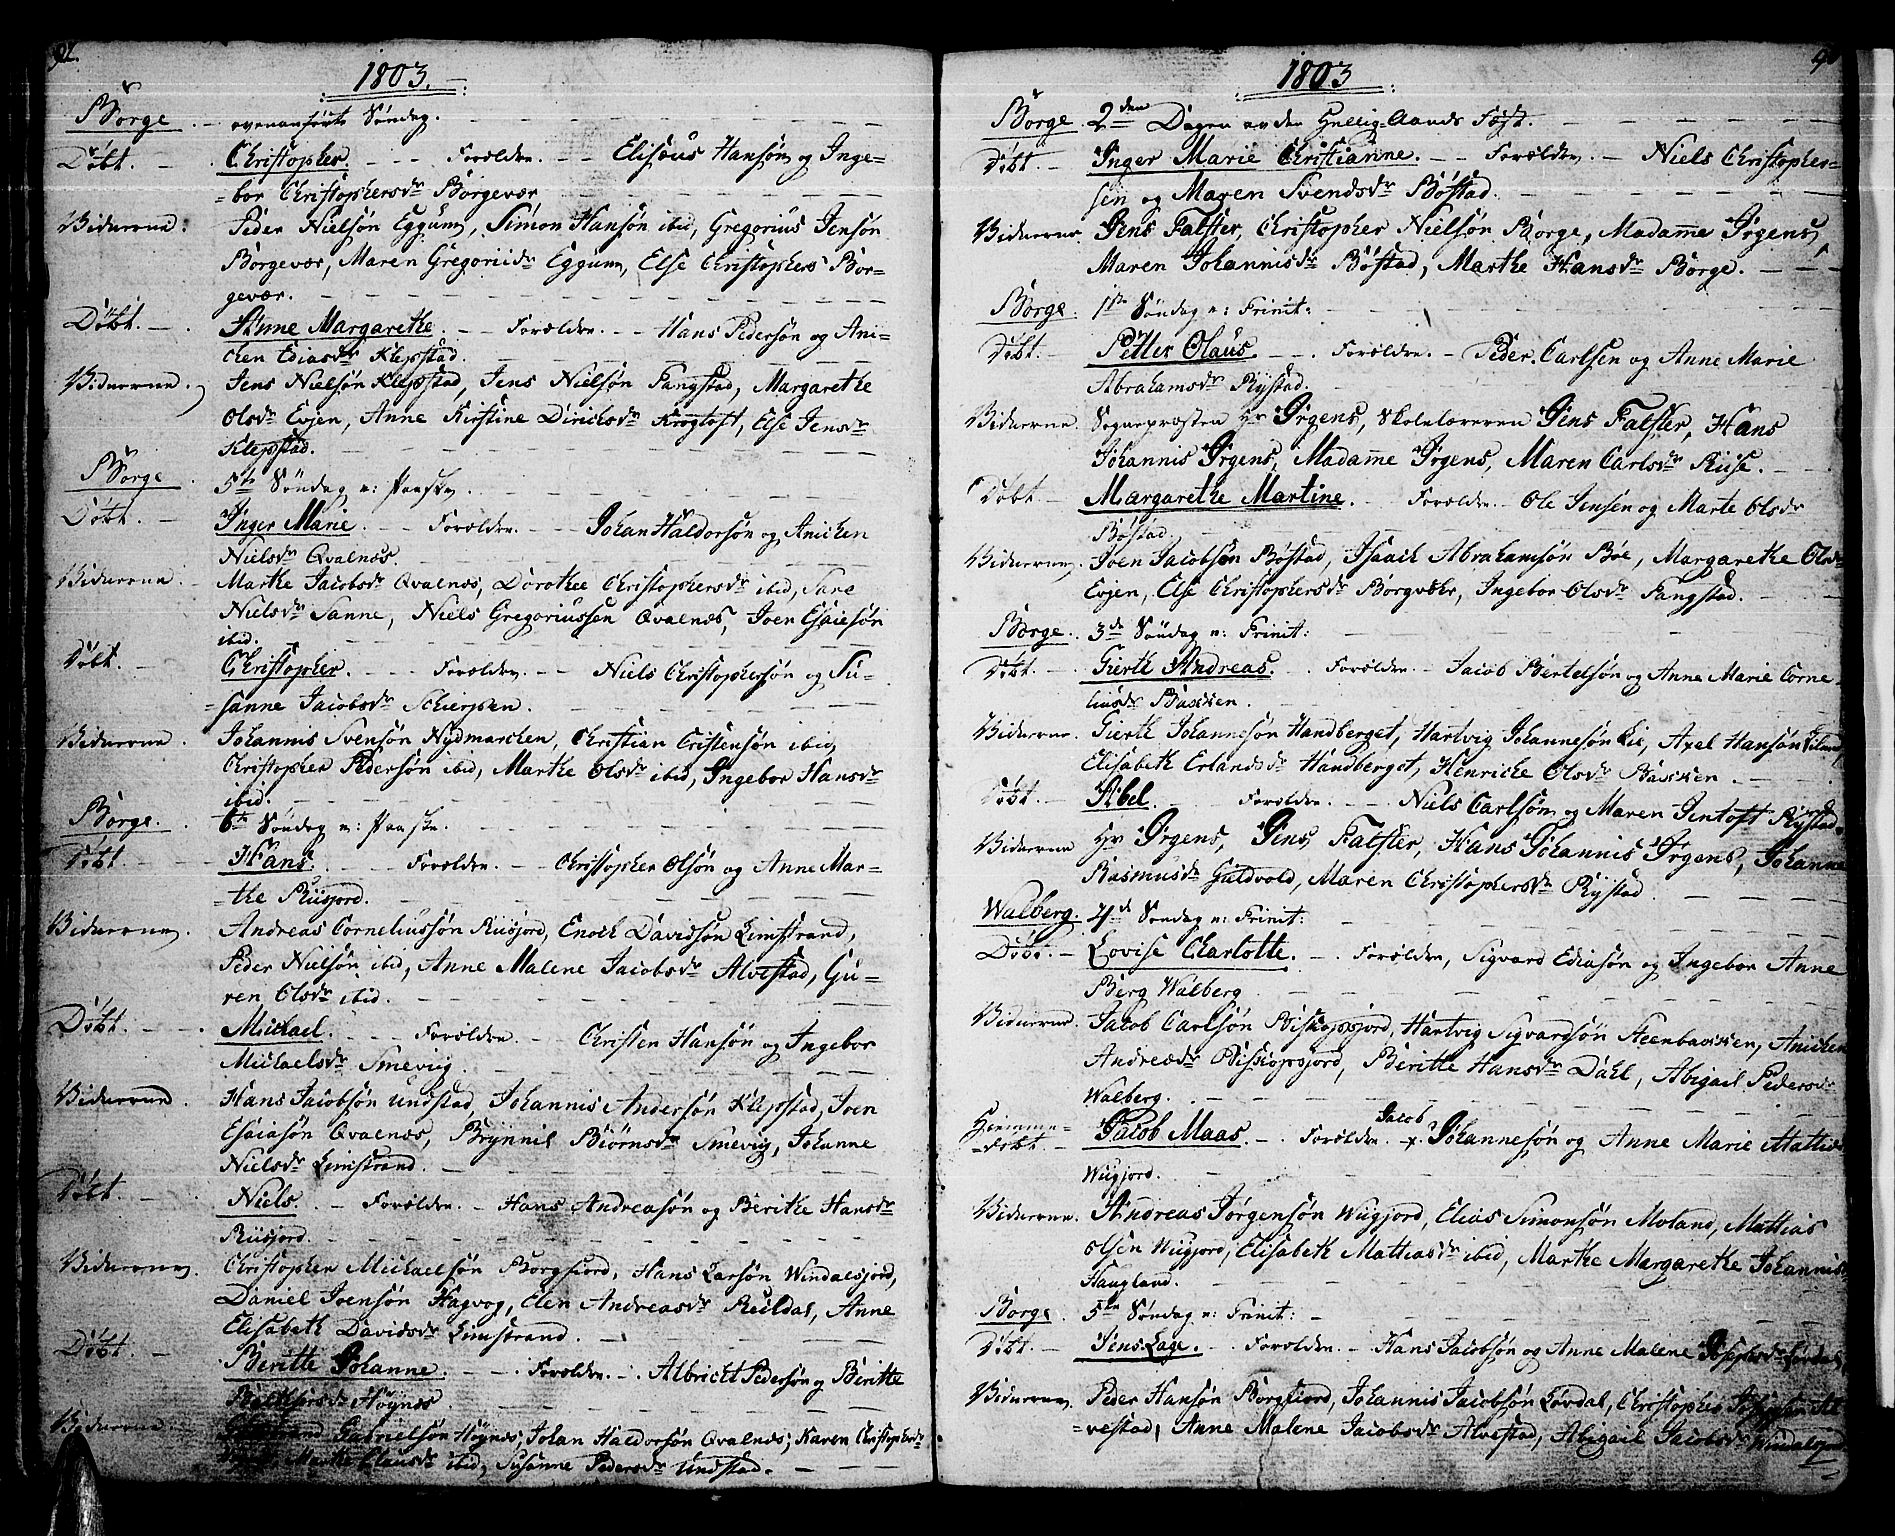 92.
1803.
Børge. ovenanførte Søndag.
Døbt. Christopher. Forældre. Elisæus Hansøn og Inge-
bor Christophersdr Børgevær
Vidnerne: Peder Nielsøn Eggum, Simon Hansøn ibid, Gregorius Jensøn
Børgevær, Maren Gregoriidr Eggum, Else Christophers Bør-
gevær.
Døbt. Anne Margarethe. Forældre. Hans Pedersøn og Ani-
chen Ediasdr Klepstad.
Vidnerne. Jens Nielsøn Klepstad, Jens Nielsøn Fangstad, Margarethe
Olsdr Evjen, Anne Kirstine Dirichsdr Krogtoft, Else Jensdr
Klepstad.
Børge 5te Søndag n: Paaske.
Døbt. Inger Marie. Forældre. Johan Haldorsøn og Anichen
Nielsdr Qvalnæs.
Vidnerne. Marthe Jacobsdr Qvalnæs, Dorothee Christophersdr ibid, Sare
Nielsdr Sanne, Niels Gregoriussen Qvalnæs, Joen Esaiesøn
ibid.
Døbt. Christopher. Forældre. Niels Christophersøn og Su-
sanne Jacobsdr Schierpen.
Vidnerne. Johannis Svensøn Nydmarchen, Christian Cristensøn ibid,
Christopher Pedersøn ibid, Marthe Olsdr ibid, Ingebor Hansdr
ibid.
Børge. 6te Søndag n: Paaske.
Døbt Hans. Forældre. Christopher Olsøn og Anne Mar-
the Riisjord.
Vidnerne. Andreas Corneliussøn Riisjord, Enoch Davidsøn Limstrand,
Peder Nielsøn ibid, Anne Malene Jacobsdr Alvestad, Gu-
ren Olsdr ibid.
Døbt. Michael. Forældre. Christen Hansøn og Ingebor
Michaelsdr Smevig.
Vidnerne. Hans Jacobsøn Undstad, Johannis Andersøn Klepstad, Joen
Esaiasøn Qvalnæs, Brynnil Biørnsdr Smevig, Johanne
Nielsdr Limstrand.
Døbt. Niels. Forældre. Hans Andreasøn og Berithe Hansdr
Riisjord.
Vidnerne. Christopher Michaelsøn Borgfiord, Hans Larsøn Windalsjord,
Daniel Joensøn Hagvog, Elen Andreasdr Reildal, Anne
Elisabeth Davidsdr Limstrand.
Døbt. Beritte Johanne. Forældre. Albricht Pedersøn og Beritte
Balthersdr Høynes.
Vidnerne Gabrielsøn Høynes, Johan Haldorsøn Qvalnæs, Karen Christophersdr
Marthe Clausdr ibid, Susanne Pedersdr Undstad.
1803
Børge 2den Dagen av den Hellig-Aands Fest.
Døbt. Inger Marie Christianne. Forældre. Niels Christopher-
sen og Maren Svendsdr Bøstad.
Vidnerne. Jens Falster, Christopher Nielsøn Børge, Madamme Irgens,
Maren Johannisdr Bøstad, Marthe Hansdr Børge.
Børge. 1ste Søndag n: Trinit:
Døbt. Petter Olaus. Forældre. Peder Carlsen og Anne Marie
Abrahamsdr Rystad.
Vidnerne. Sognepræsten Hr Irgens, Skolelæreren Jens Falster, Hans
Johannis Irgens, Madamme Irgens, Maren Carlsdr Riise.
Døbt Margarethe Martine. Forældre. Ole Jensen og Marte Olsdr
Bøstad
Vidnerne. Joen Jacobsøn Bøstad, Isaach Abrahamsøn Bøe, Margarethe Olsdr
Evjen, Else Christophersdr Børgvær, Ingebor Olsdr Fangstad.
Børge. 3de Søndag n: Trinit:
Døbt. Gierth Andreas. Forældre. Jacob Bertelsøn og Anne Marie Corne-
liusdr Bakken.
Vidnerne. Gierth Johannesøn Handberget, Hartvig Johannesøn Lie, Axel Hansøn
Elisabeth Erlandsdr Handberget, Henriche Olsdr Bakken.
Døbt. Abel. Forældre. Niels Carlsøn og Maren Jentoft Rystad.
Vidnerne Hr Irgens, Jens Falster, Hans Johannis Irgens, Johanne
Rasmusdr Guldvold, Maren Christophersdr Rystad
Walberg. 4de Søndag n: Trinit:
Døbt. Lovise Charlotte. Forældre, Sigvard Ediasøn og Ingebor Anne
Berg Walberg
Vidnerne. Jacob Carlsøn Biskopsjord, Hartvig Sigvardsøn Steenbakken, Anichen
Andreædr Biskopsjord, Beritte Hansdr Dahl, Abigail Pedersdr
Walberg.
Hiemme-
døbt. Jacob Maas. Forældre. Jacob Johannesøn og Anne Marie Mattisdr
Wigjord.
Vidnerne. Andreas Jørgensøn Wigjord, Elias Simonsøn Moland, Mathias
Olsen Wigjord, Elisabeth Mathiasdr ibid, Marthe Margarethe Johannis
Haugland.
Børge. 5te Søndag n: Trinit:
Døbt. Jens Lage. Forældre. Hans Jacobsøn og Anne Malene Josephsdr Lørdal,
Vidnerne. Peder Hansøn Borgfiord, Johannis Jacobsøn Lørdal, Christopher Al-
vestad, Anne Malene Jacobsdr Alvestad, Abigail Jacobsdr Windalsjord